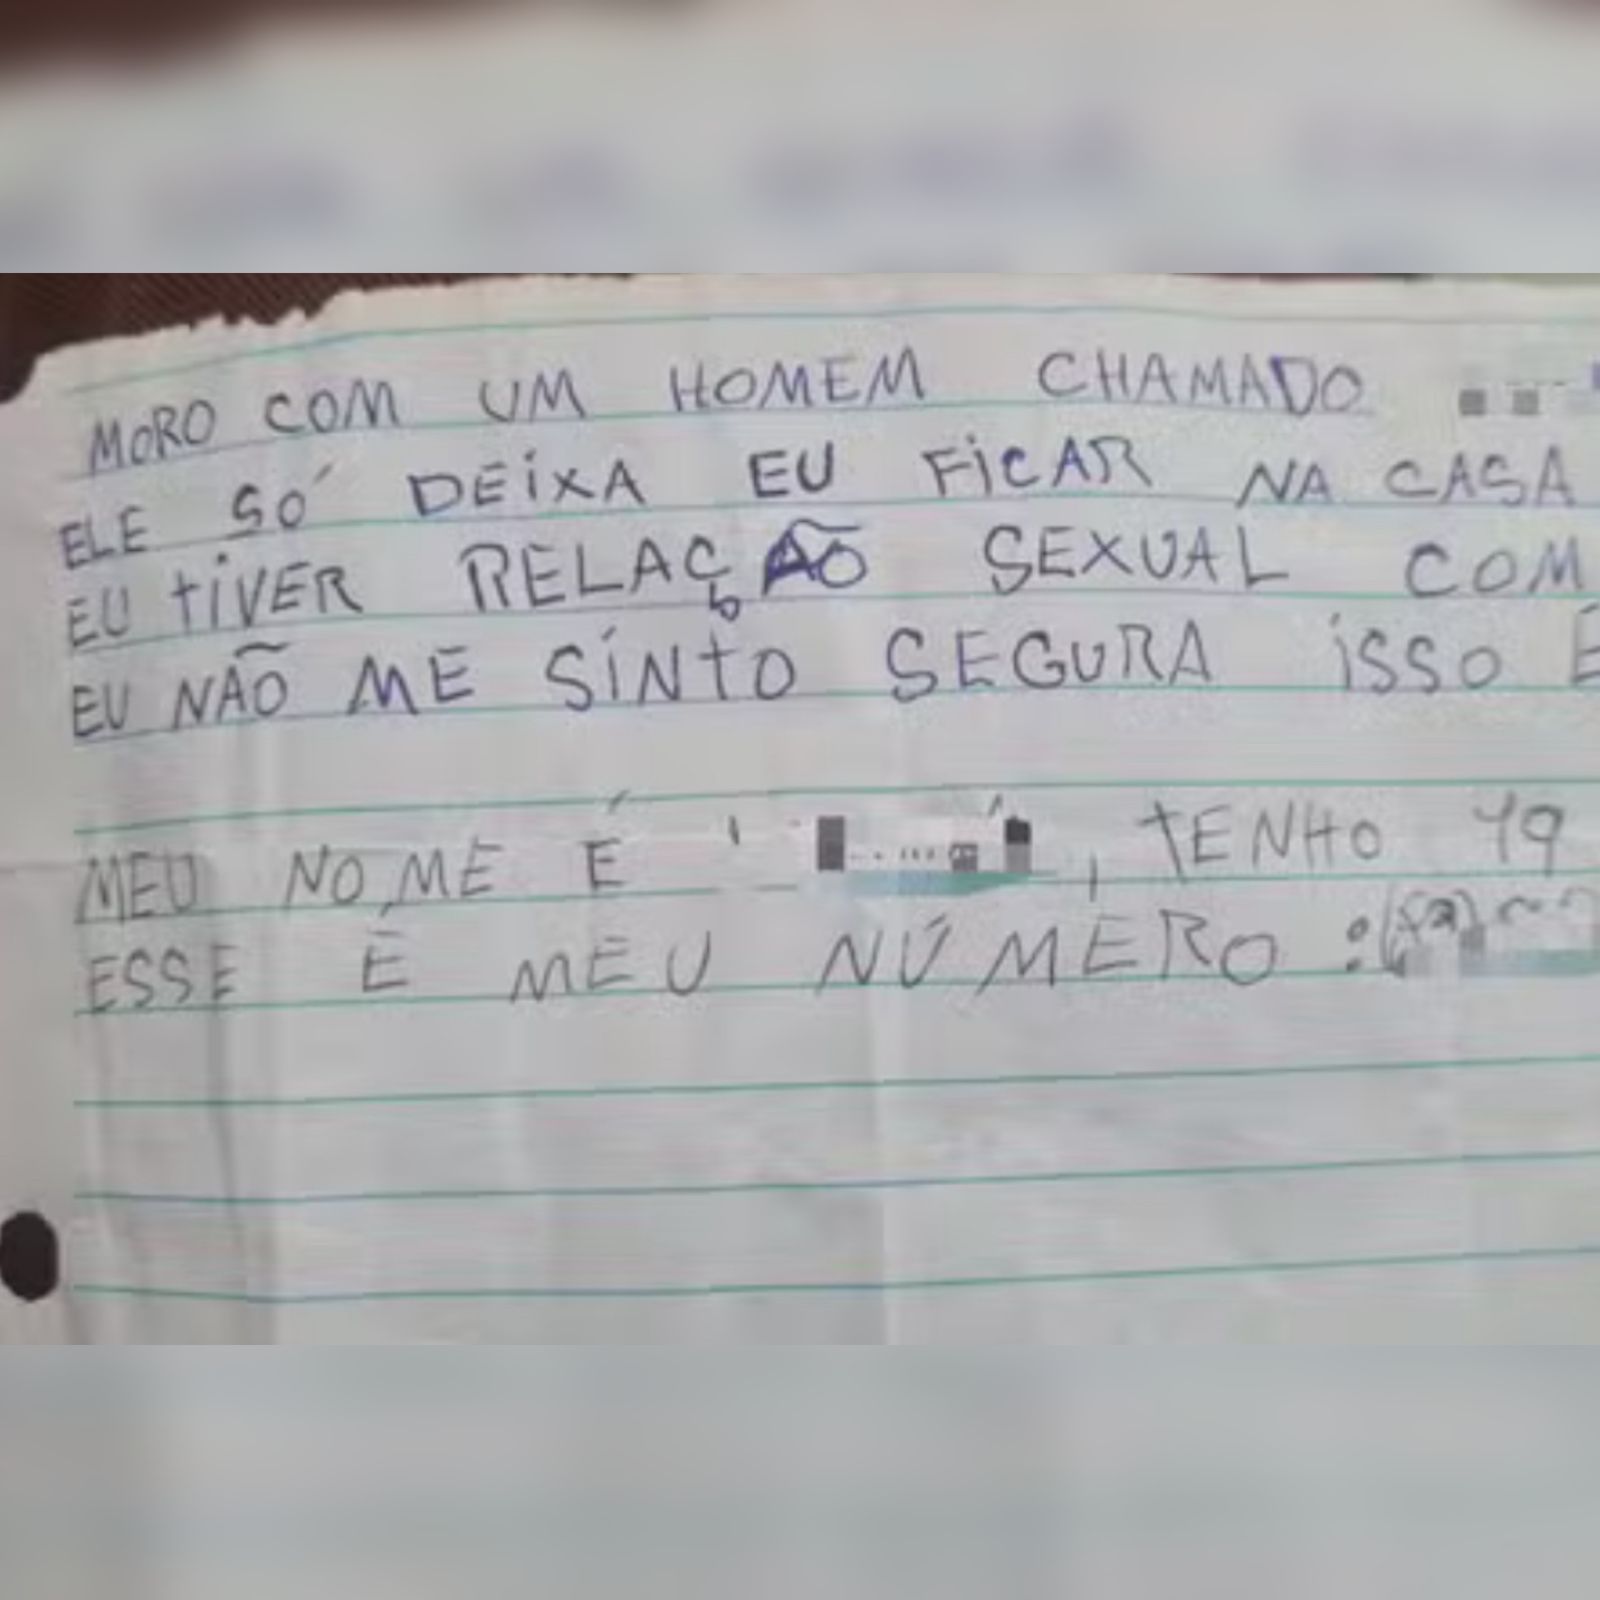 MORO COM UM HOMEM CHAMADO
ELE SÓ DEIXA EU FICAR NA CASA
EU TIVER RELAÇÃO SEXUAL COM
EU NÃO ME SINTO SEGURA ISSO É
MEU NOME É , TENHO 19
ESSE É MEU NÚMERO :